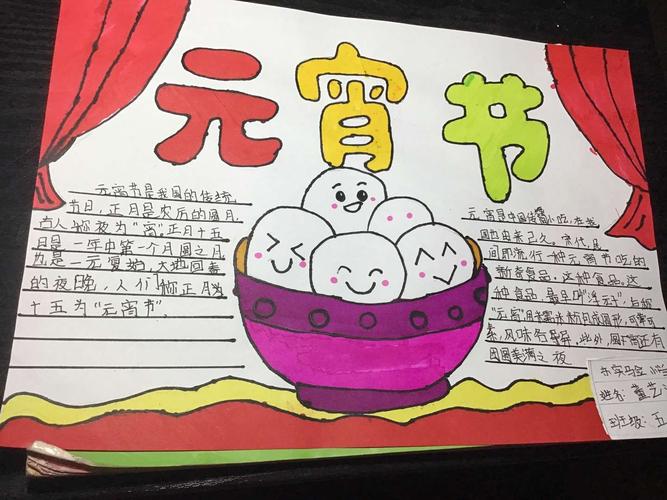 元宵节
元宵节是我国的传统
节日,正月是农历的圆月
古人称夜为"宵"正月十五
日是一年中第一个月圆之月
也是一元复始,大地回春
的夜晚,人们称正月为
十五为"元宵节".
元宵是中国传统小吃,在我
国由来已久。宋代,民
间即流行一种元宵节吃的
新奇食品。这种食品。这
种食品,最早叫"浮元子",后称
"元宵"用糯米粉月成圆形,可荤可
素,风味各异。此外,圆宵还有
团圆美满之夜
小学
姓名:董艺
班级:五